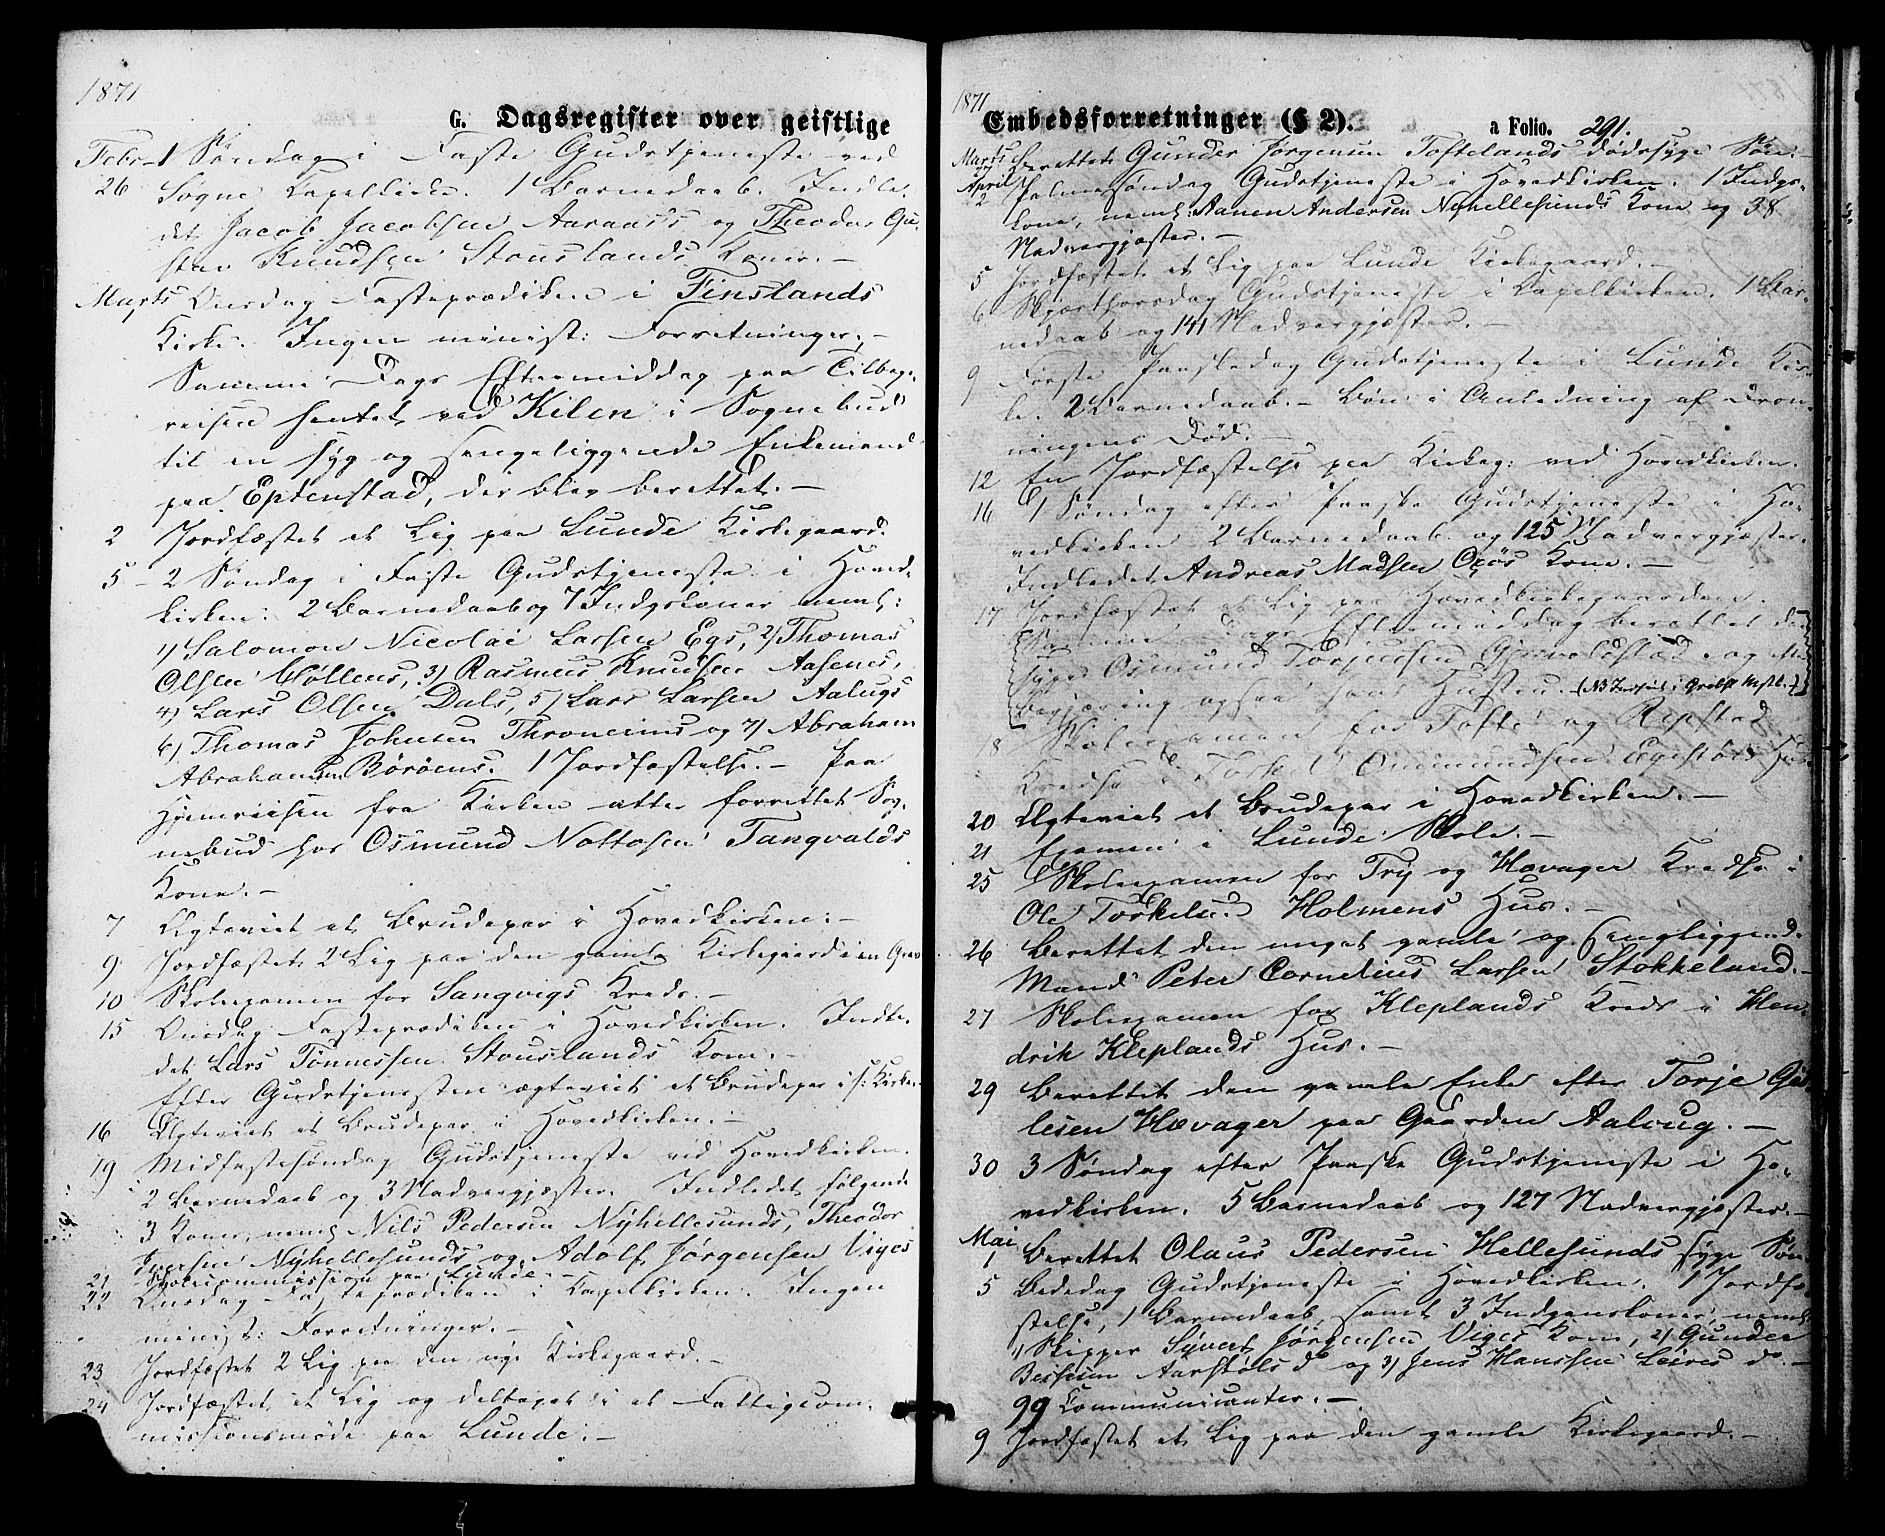 1871
G. Dagsregister over geistlige
Febr. 1 Søndag i Faste Gudstjeneste ved
26 Søgne Capelkirke. 1 Barnedaab. Indle-
det Jacob Jacobsen Aaraas's og Theodor Gu-
stav Knudsen Stouslands Koner. –
Marts Onsdag Fasteprædiken i Finslands
Kirke. Ingen minist: Forretninger. –
Samme Dags Eftermiddag paa Tilbage-
reisen hentet ved Kilen i Sognebud
til en syg og sengeliggende Enkemand
paa Eptenstad, der blev berettet. –
2 Jordfæstet et Lig paa Lunde Kirkegaard.
5 – 2 Søndag i Faste Gudstjeneste i Hoved-
kirken: 2 Barnedaab og 7 Indgskoner neml:
1) Salomon Nicolai Larsen Egs, 2) Thomas
Olsen Møllens, 3) Rasmus Knudsen Aasenes,
4) Lars Olsen Dals, 5) Lars Larsen Aalugs
6) Thomas Johnsen Throneims og 7) Abraham
Abrahamsen Børøens. 1 Jordfæstelse. – Paa
Hjemreisen fra Kirken atter forrettet Sog-
nebud hos Osmund Nottosen Tangvalds
Kone. –
7 Ægteviet et Brudepar i Hovedkirken. –
9 Jordfæstet 2 Lig paa den gamle Kirkegaard i en Grav
10 Skoleexamen for Langvigs Kreds. –
15 Onsdag Fasteprædiken i Hovedkirken. Indle-
det Lars Tønnessen Stouslands Kone. –
Efter Gudstjenesten ægteviet et Brudepar i s: Kirke. –
16 Ægteviet et Brudepar i Hovedkirken. –
19 Midfastesøndag Gudstjeneste ved Hovedkirken.
2 Barnedaab og 3 Nadvergjæster. Indledet følgende
3 Koner, neml Nils Pedersen Nyhellesunds, Theodor
Iversen Nyhellesunds og Adolf Jørgensen Viges
21 Skolecommission paa Lunde. –
22 Onsdag Fasteprædiken i Capelkirken. Ingen
minist: Forretninger. –
23 Jordfæstet 2 Lig paa den nye Kirkegaard. –
24 Jordfæstet et Lig og deltaget i et Fattigcom-
missionsmøde paa Lunde. –
1871
Embedsforretninger (§ 2). a Folio. 291.
Marts Berettet Gunder Jørgensen Toftelands dødssyge Søn. –
April
2 Palmesøndag Gudstjeneste i Hovedkirken. 1 Indgs-
kone, neml: Aanen Andersen Nyhellesunds Kone og 38
Nadvergjæster. –
5 Jordfæstet et Lig paa Lunde Kirkegaard. –
6 Skjærthorsdag Gudstjeneste i Capelkirken. 1 Bar-
nedaab og 141 Nadvergjæster. –
9 Første Paaskedag Gudstjeneste i Lunde Kir-
ke. 2 Barnedaab. – Bøn i Anledning af Dron-
ningens Død. –
12 En Jordfæstelse paa Kirkeg: ved Hovedkirken.
16 1 Søndag efter Paaske Gudstjeneste i Ho-
vedkirken 2 Barnedaab og 125 Nadvergjæster.
Indledet Andreas Madsen Oøs Kone. –
17 Jordfæstet et Lig paa Hovedkirkegaarden.
Samme Dags Eftermiddag berettet den
syge Osmund Torjussen Gjervoldstad og efter
Begjæring ogsaa hans Hustru.
18 Skoleexamen for Tofte og Repstad
Kredse i Torkel Ommundsen Egeslees Hus.
20 Ægteviet et Brudepar i Hovedkirken. –
21 Examen i Lunde Skole. –
25 Skoleexamen for Try og Hævager Kredse i
Ole Torkelsens Holmens Hus. –
26 Berettet den meget gamle og sengliggende
Mand Peter Cornelius Larsen Stokkeland. –
27 Skoleexamen for Kleplands Kreds i Hen-
drik Kleplands Hus. –
29 Berettet den gamle Enke efter Torje Gu-
lesen Hævager paa Gaarden Aalvug. –
30 3 Søndag efter Paaske Gudstjeneste i Ho-
vedkirken. 5 Barnedaab og 127 Nadvergjæster. –
Mai
1 Berettet Olaus Pedersen Hellesunds syge Søn
5 Bededag Gudstjeneste i Hovedkirken. 1 Jordfæ-
stelse, 1 Barnedaab samt 3 Indgangskoner, neml
1) Skipper Syvert Jørgensen Viges Kone, 2) Gunder
Aarstøls do og 3) Jens Hanssen Leires do. –
99 Communicanter. –
9 Jordfæstet et Lig paa den gamle Kirkegaard. –